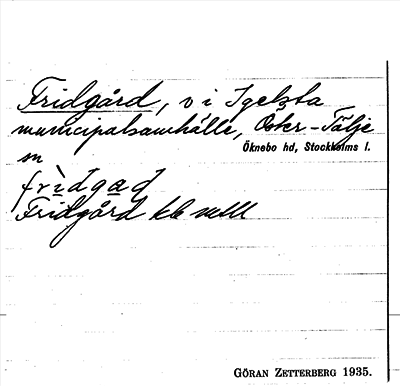 Fridgård, v i Igelsta
municipalsamhälle, Öster-Tälje
sn
Öknebo hd, Stockholms l.
frìdgaḍ
Fridgård
GÖRAN ZETTERBERG 1935.